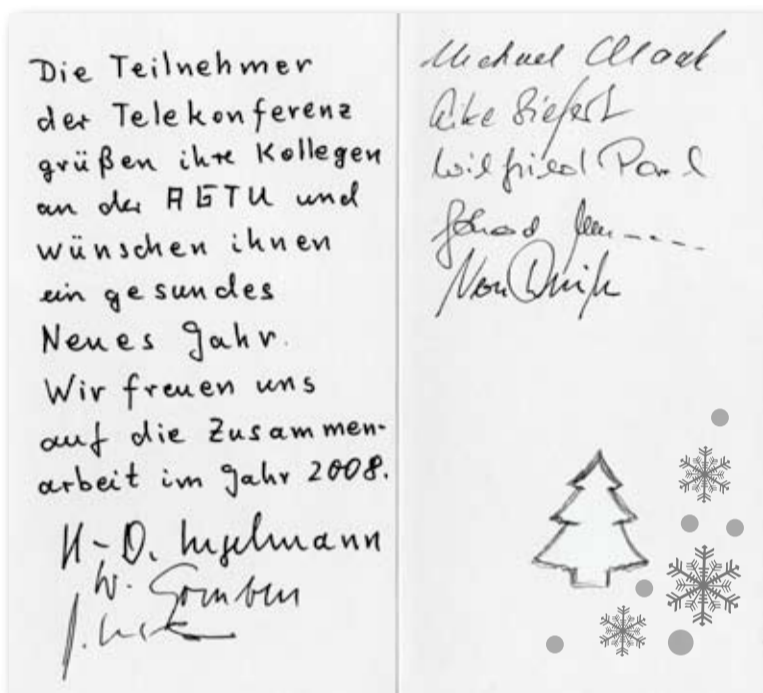 Die Teilnehmer
der Telekonferenz
grüßen ihre Kollegen
an der AGTU und
wünschen ihnen
ein gesundes
Neues Jahr.
Wir freuen uns
auf die Zusammen-
arbeit im Jahr 2008.
H-D.
W.
Michael
Eike Siefert
Wilfried Paul